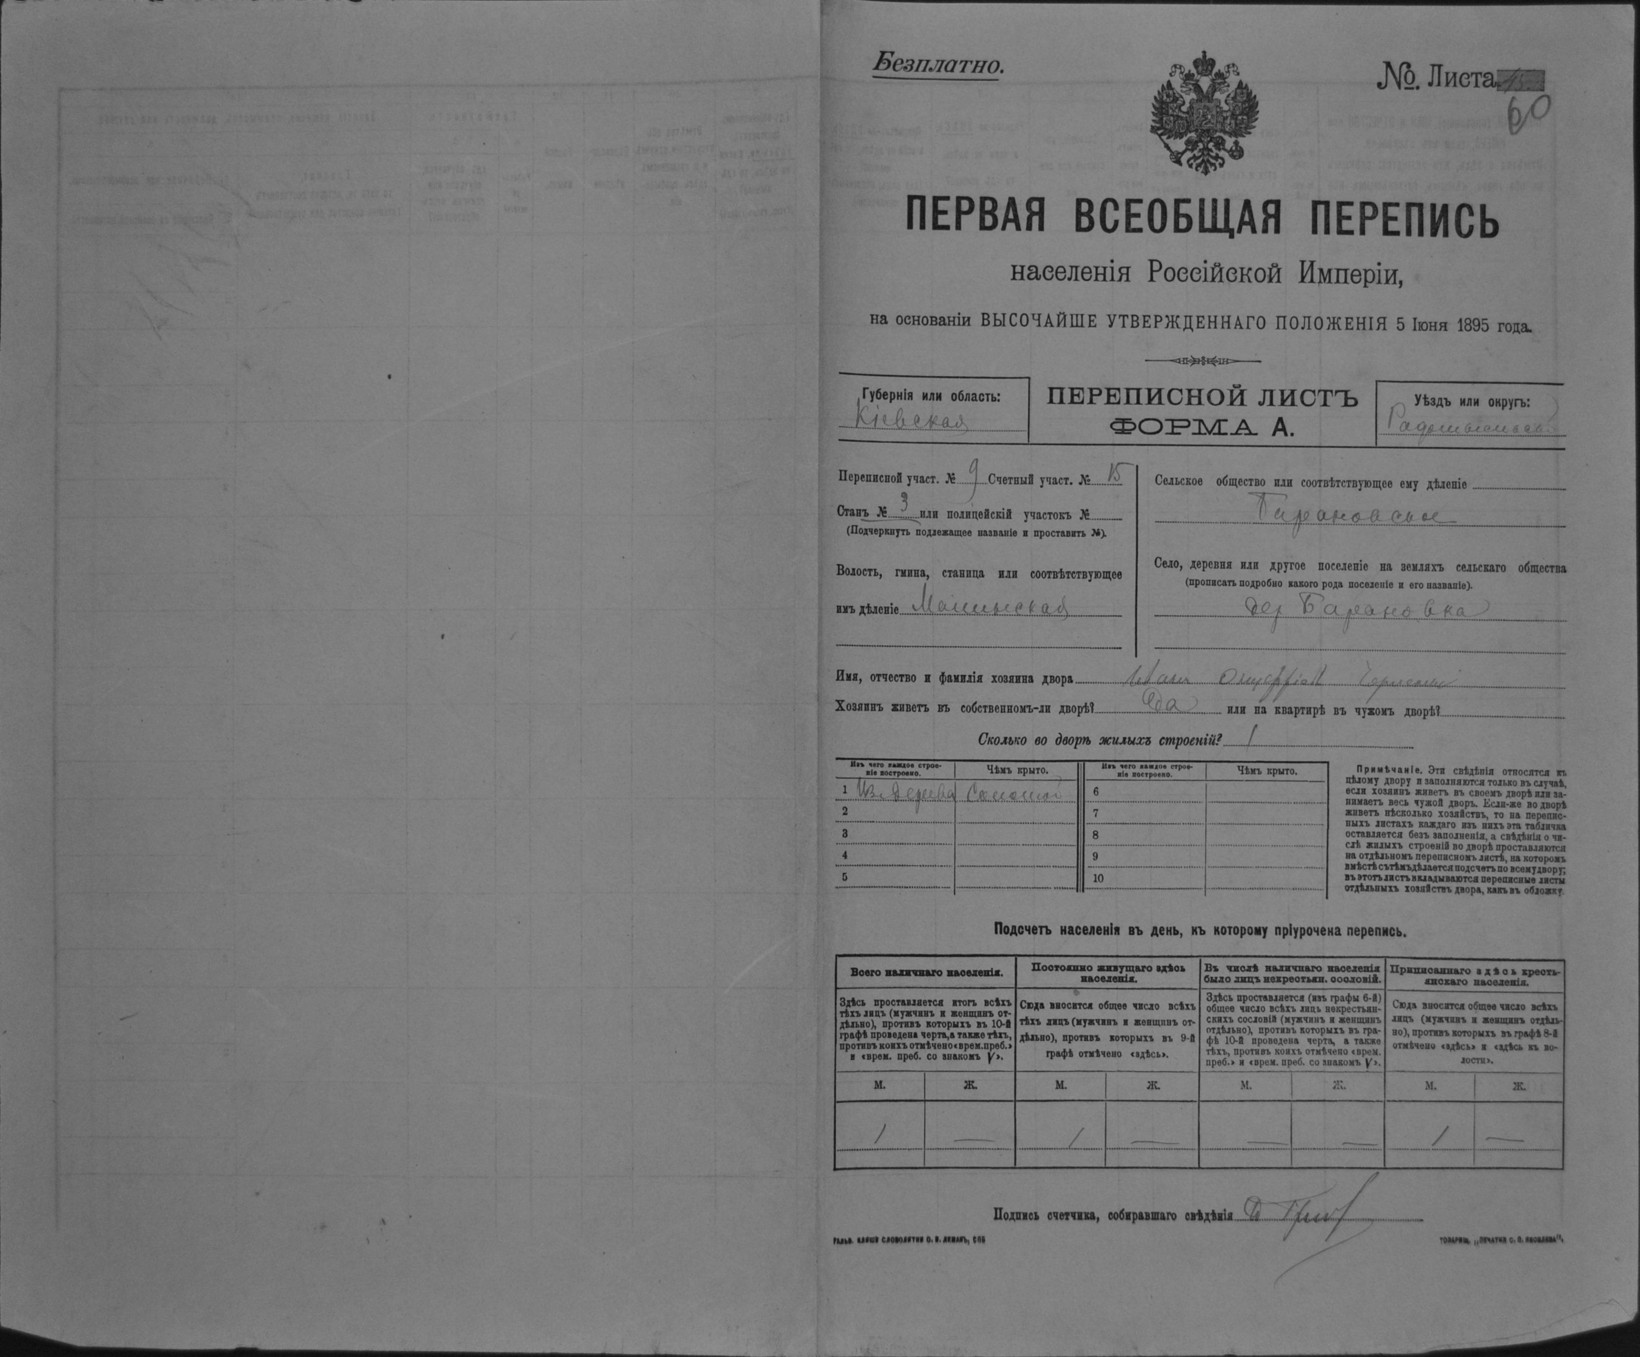 Безплатно.
№. Листа 60
ПЕРВАЯ ВСЕОБЩАЯ ПЕРЕПИСЬ
населенія Россійской Имперіи,
на основаніи ВЫСОЧАЙШЕ УТВЕРЖДЕННАГО ПОЛОЖЕНІЯ 5 Іюня 1895 года.
Губернія или область:
Кіевская
ПЕРЕПИСНОЙ ЛИСТЪ
ФОРМА А.
Уѣздъ или округъ:
Переписной участ. № 9 Счетный участ. № 15
Станъ № 3 или полицейскій участокъ №
(Подчеркнуть подлежащее названіе и проставить №).
Волость, гмина, станица или соотвѣтствующее
имъ дѣленіе Малинская
Сельское общество или соотвѣтствующее ему дѣленіе
Барановское
Село, деревня или другое поселеніе на земляхъ сельскаго общества
(прописать подробно какого рода поселеніе и его названіе).
дер Барановка
Имя, отчество и фамилія хозяина двора Иванъ
Хозяинъ живетъ въ собственномъ-ли дворѣ? Да или на квартирѣ въ чужомъ дворѣ?
Сколько во дворѣ жилыхъ строеній? 1
Изъ чего каждое строе-
ніе построено.
Чѣмъ крыто.
Изъ чего каждое строе-
ніе построено.
Чѣмъ крыто.
1 Изъ дерева Соломой 6
2 7
3 8
4 9
5 10
Примѣчаніе. Эти свѣдѣнія относятся къ
цѣлому двору и заполняются только въ случаѣ,
если хозяинъ живетъ въ своемъ дворѣ или за-
нимаетъ весь чужой дворъ. Если-же во дворѣ
живетъ нѣсколько хозяйствъ, то на перепис-
ныхъ листахъ каждаго изъ нихъ эта табличка
оставляется безъ заполненія, а свѣдѣнія о чи-
слѣ жилыхъ строеній во дворѣ проставляются
на отдѣльномъ переписномъ листѣ, на которомъ
вмѣстѣ съ тѣмъ дѣлается подсчетъ по всему двору;
въ этотъ листъ вкладываются переписные листы
отдѣльныхъ хозяйствъ двора, какъ въ обложку.
Подсчетъ населенія въ день, къ которому пріурочена перепись.
Всего наличнаго населенія.
Здѣсь проставляется итогъ всѣхъ
тѣхъ лицъ (мужчинъ и женщинъ от-
дѣльно), противъ которыхъ въ 10-й
графѣ проведена черта, а также тѣхъ,
противъ коихъ отмѣчено «врем. преб.»
и «врем. преб. со знакомъ V».
Постоянно живущаго здѣсь
населенія.
Сюда вносится общее число всѣхъ
тѣхъ лицъ (мужчинъ и женщинъ от-
дѣльно), противъ которыхъ въ 9-й
графѣ отмѣчено «здѣсь».
Въ числѣ наличнаго населенія
было лицъ некрестьян. сословій.
Здѣсь проставляется (изъ графы 6-й)
общее число всѣхъ лицъ некрестьян-
скихъ сословій (мужчинъ и женщинъ
отдѣльно), противъ которыхъ въ гра-
фѣ 10-й проведена черта, а также
тѣхъ, противъ коихъ отмѣчено «врем.
преб.» и «врем. преб. со знакомъ V».
Приписаннаго здѣсь кресть-
янскаго населенія.
Сюда вносится общее число всѣхъ
лицъ (мужчинъ и женщинъ отдѣль-
но), противъ которыхъ въ графѣ 8-й
отмѣчено «здѣсь» и «здѣсь къ во-
лости».
М. Ж. М. Ж. М. Ж. М. Ж.
1 — 1 — — — 1 —
Подпись счетчика, собиравшаго свѣдѣнія
ГАЛЬВ. КЛИШЕ СЛОВОЛИТНИ О. И. ЛЕМАНЪ, СПБ
ТОВАРИЩ. „ПЕЧАТНЯ С. П. ЯКОВЛЕВА".